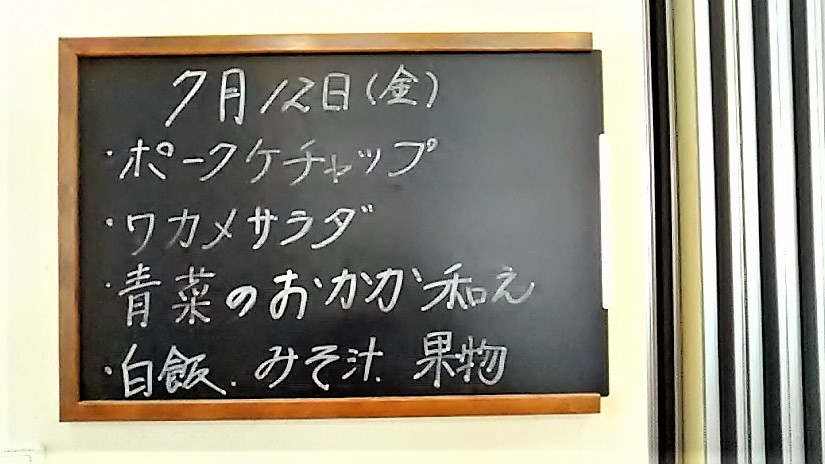 7月12日(金)
・ポークケチャップ
・ワカメサラダ
・青菜のおかか和え
・白飯．みそ汁 果物